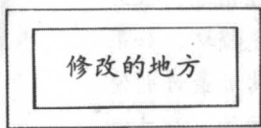 修改的地方